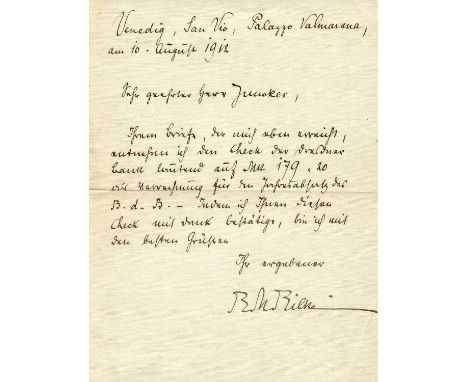 Venedig, San Vio, Palazzo Valmarana,
am 10. August 1912
Sehr geehrter Herr Juncker,
Ihrem Briefe, der mich eben erreicht,
entnehm ich den Check der Dresdner
Bank lautend auf Mk 179,20
als Verrechnung für den Jahresabsatz des
B. d. B. – Indem ich Ihnen diesen
Check mit Dank bestätige, bin ich mit
den besten Grüßen
Ihr ergebener
RMRilke